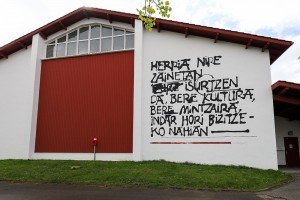 HERRIA NIRE
ZAINETAN
ISURTZEN
DA, BERE KULTURA,
BERE MINTZAIRA,
INDAR HORI BIZITZE-
KO NAHIAN